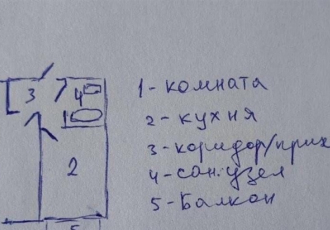 3
4
2
5
1 - комната
2 - кухня
3 - коридор/прих
4 - сан.узел
5 - Балкон